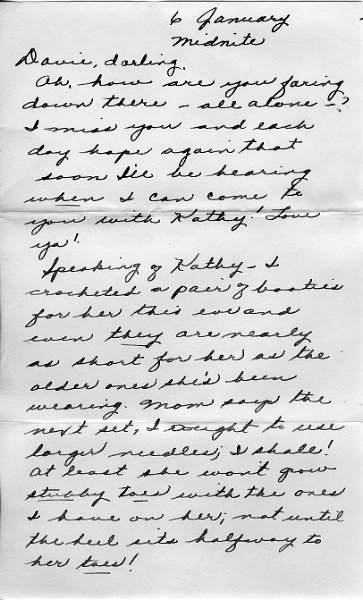 6 January
Midnite
Davie, darling.
Oh, how are you faring
down there - all alone -?
I miss you and each
day hope again that
soon I'll be hearing
when I can come to
you with Kathy! Love
ya!
Speaking of Kathy - I
crocheted a pair of booties
for her this eve and
even they are nearly
as short for her as the
older ones she's been
wearing. Mom says the
next set, I ought to use
larger needles; I shall!
At least she wont grow
stubby toes with the ones
I have on her; not until
the heel sits halfway to
her toes!